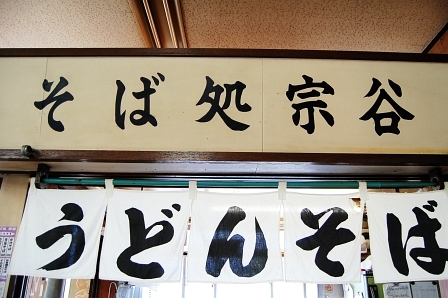 そば処宗谷
うどんそば